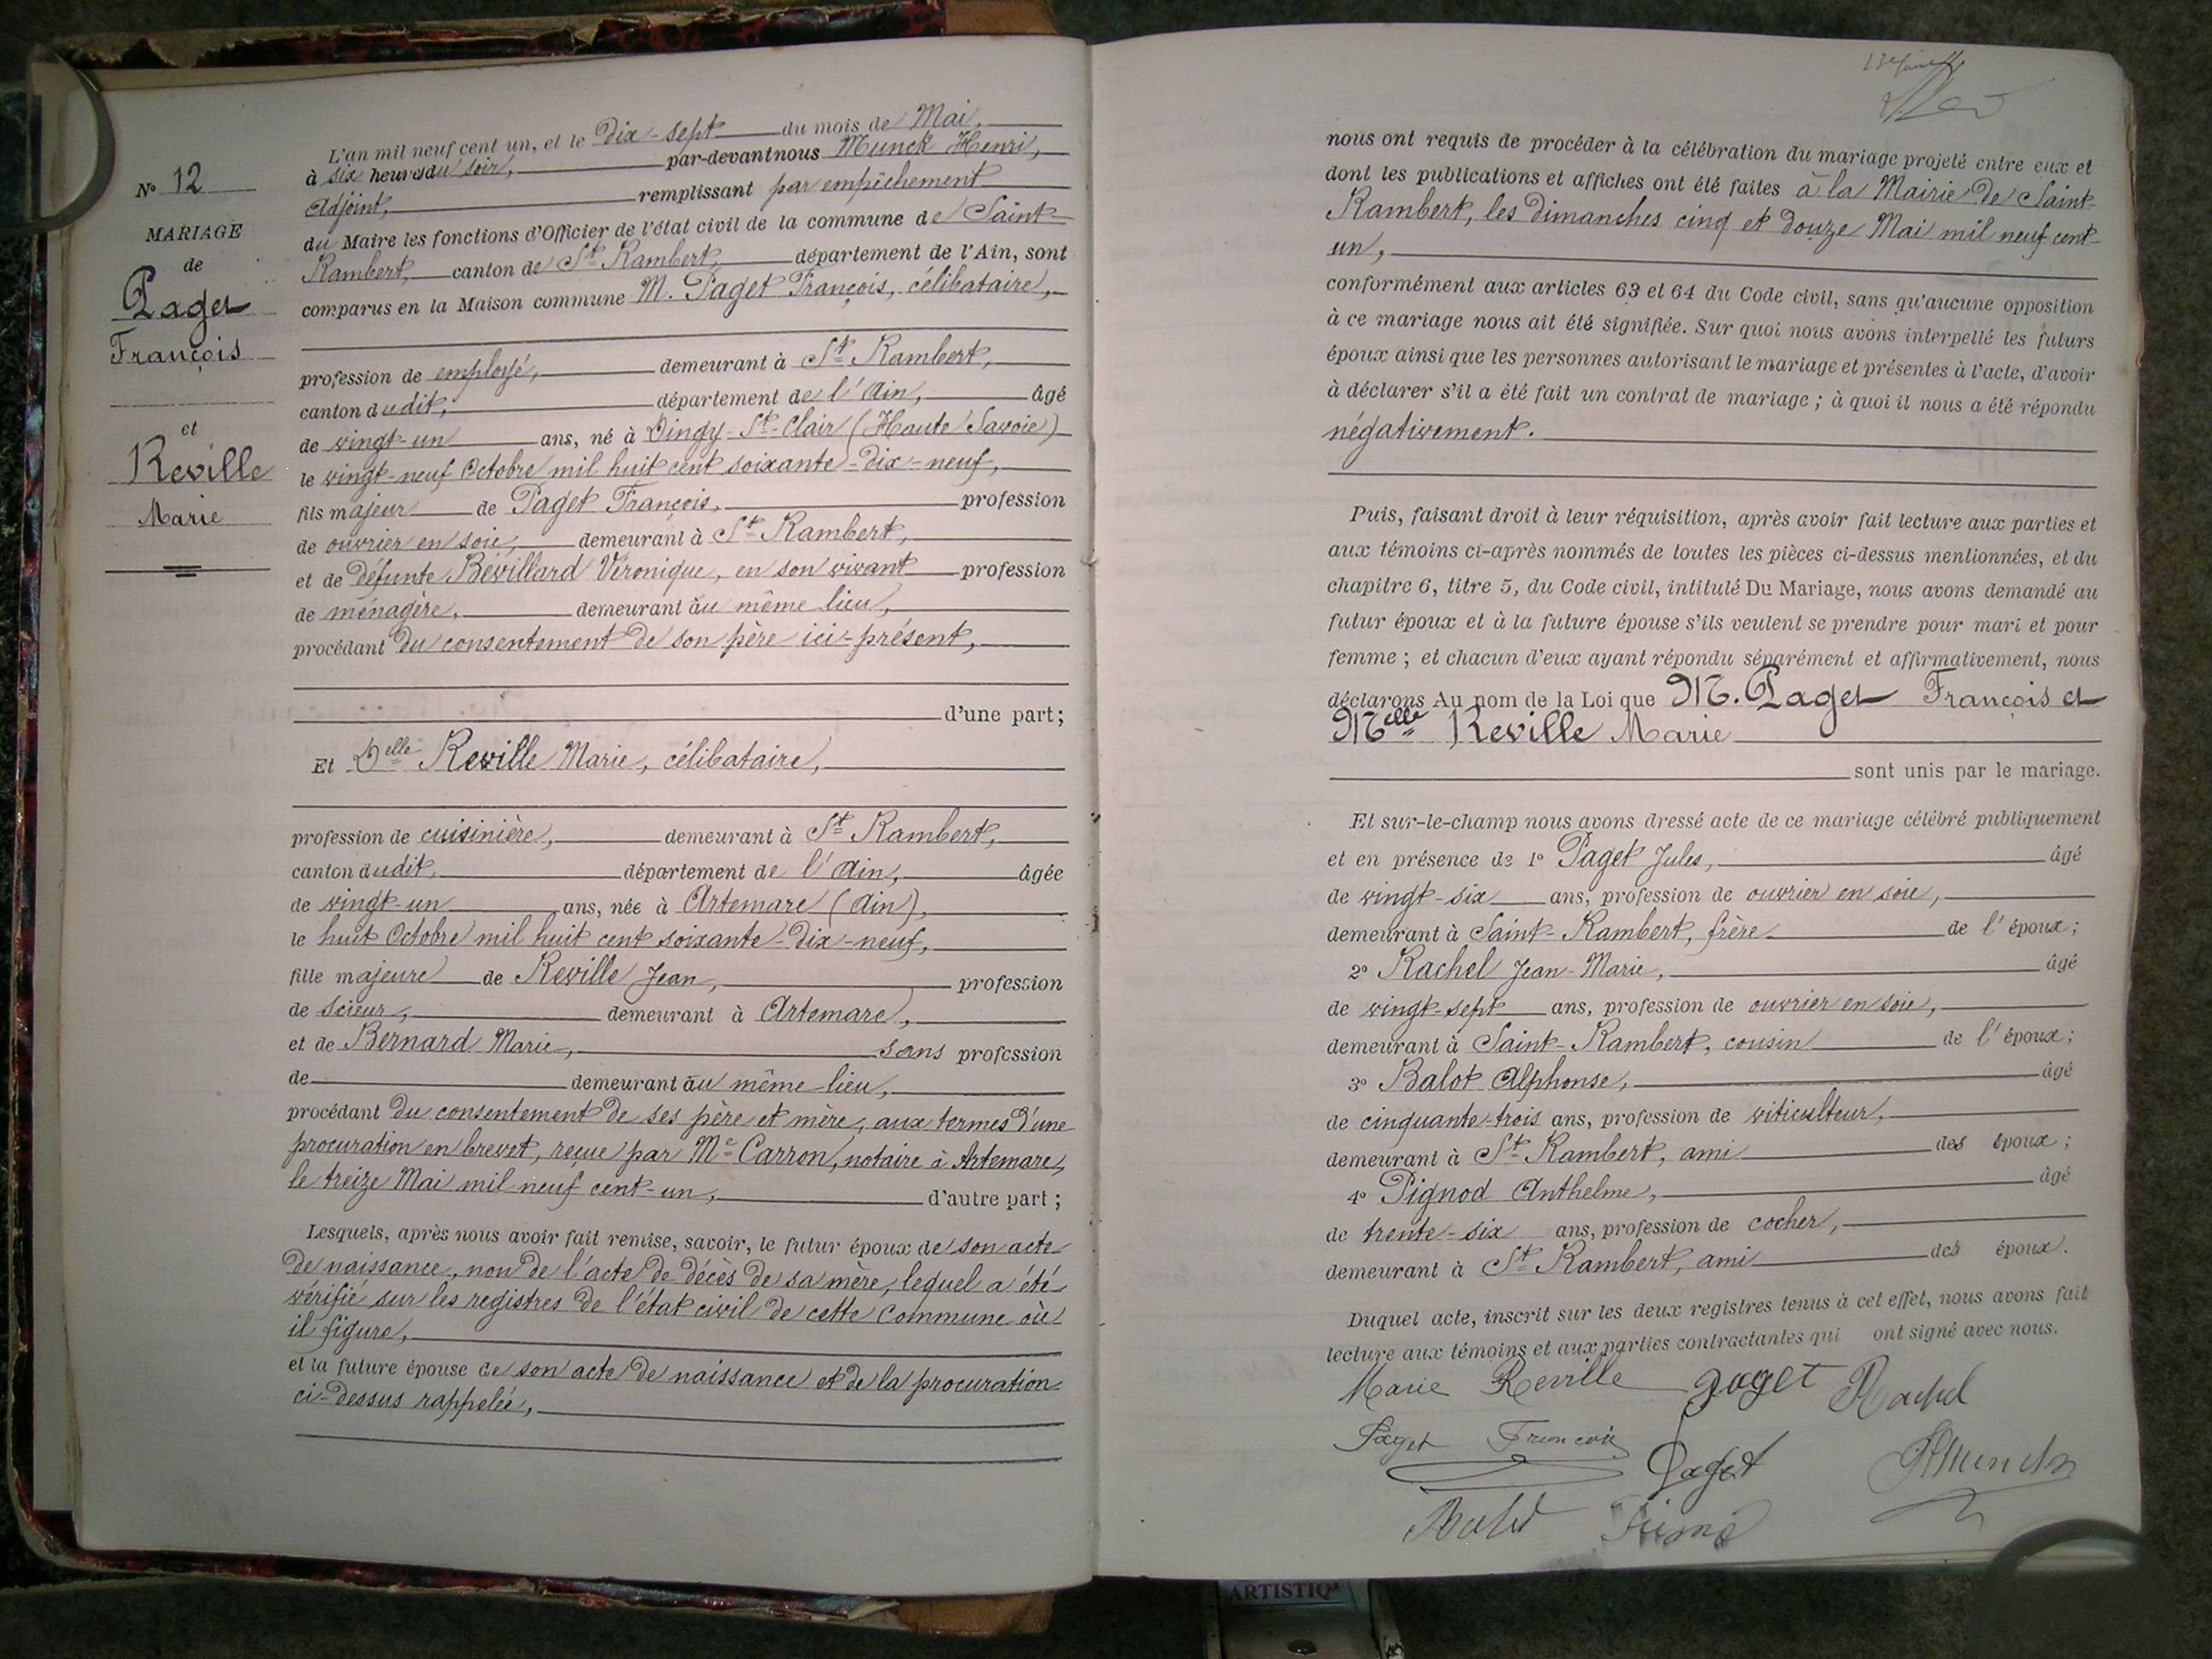 N° 12
MARIAGE
de
Paget
François
et
Reville
Marie
L'an mil neuf cent un, et le Dix-sept du mois de Mai,
à six heures du soir, par-devant nous Munck Henri,
Adjoint, remplissant par empêchement
du Maire les fonctions d'Officier de l'état civil de la commune de Saint-
Rambert, canton de St Rambert, département de l'Ain, sont
comparus en la Maison commune M. Paget François, célibataire,
profession de employé, demeurant à St Rambert,
canton dudit, département de l'Ain, âgé
de vingt-un ans, né à Dingy-St-Clair (Haute Savoie)
le vingt-neuf Octobre mil huit cent soixante-dix-neuf,
fils majeur de Paget François, profession
de ouvrier en soie, demeurant à St Rambert,
et de défunte Bévillard Véronique, en son vivant profession
de ménagère, demeurant au même lieu,
procédant du consentement de son père ici-présent,
d'une part;
Et Delle Reville Marie, célibataire,
profession de cuisinière, demeurant à St Rambert,
canton dudit, département de l'Ain, âgée
de vingt-un ans, née à Artemare (Ain),
le huit Octobre mil huit cent soixante-dix-neuf,
fille majeure de Reville Jean, profession
de scieur, demeurant à Artemare,
et de Bernard Marie, sans profession
de demeurant au même lieu,
procédant du consentement de ses père et mère, aux termes d'une
procuration en brevet, reçue par Me Carron, notaire à Artemare,
le treize Mai mil neuf cent-un, d'autre part;
Lesquels, après nous avoir fait remise, savoir, le futur époux de son acte
de naissance, non de l'acte de décès de sa mère, lequel a été
vérifié sur les registres de l'état civil de cette Commune où
il figure,
et la future épouse de son acte de naissance et de la procuration
ci-dessus rappelée,
nous ont requis de procéder à la célébration du mariage projeté entre eux et
dont les publications et affiches ont été faites à la Mairie de Saint-
Rambert, les dimanches cinq et douze Mai mil neuf cent-
un,
conformément aux articles 63 et 64 du Code civil, sans qu'aucune opposition
à ce mariage nous ait été signifiée. Sur quoi nous avons interpellé les futurs
époux ainsi que les personnes autorisant le mariage et présentes à l'acte, d'avoir
à déclarer s'il a été fait un contrat de mariage; à quoi il nous a été répondu
négativement.
Puis, faisant droit à leur réquisition, après avoir fait lecture aux parties et
aux témoins ci-après nommés de toutes les pièces ci-dessus mentionnées, et du
chapitre 6, titre 5, du Code civil, intitulé Du Mariage, nous avons demandé au
futur époux et à la future épouse s'ils veulent se prendre pour mari et pour
femme; et chacun d'eux ayant répondu séparément et affirmativement, nous
déclarons Au nom de la Loi que M. Paget François et
Melle Reville Marie
sont unis par le mariage.
Et sur-le-champ nous avons dressé acte de ce mariage célébré publiquement
et en présence de 1° Paget Jules, âgé
de vingt-six ans, profession de ouvrier en soie,
demeurant à Saint-Rambert, frère de l'époux;
2° Rachel Jean-Marie, âgé
de vingt-sept ans, profession de ouvrier en soie,
demeurant à Saint-Rambert, cousin de l'époux;
3° Balot Alphonse, âgé
de cinquante-trois ans, profession de viticulteur,
demeurant à St Rambert, ami des époux;
4° Pignod Anthelme, âgé
de trente-six ans, profession de cocher,
demeurant à St Rambert, ami des époux.
Duquel acte, inscrit sur les deux registres tenus à cet effet, nous avons fait
lecture aux témoins et aux parties contractantes qui ont signé avec nous.
Marie Reville paget Rachel
Paget François Paget HMunck
Balot
ARTISTIQ